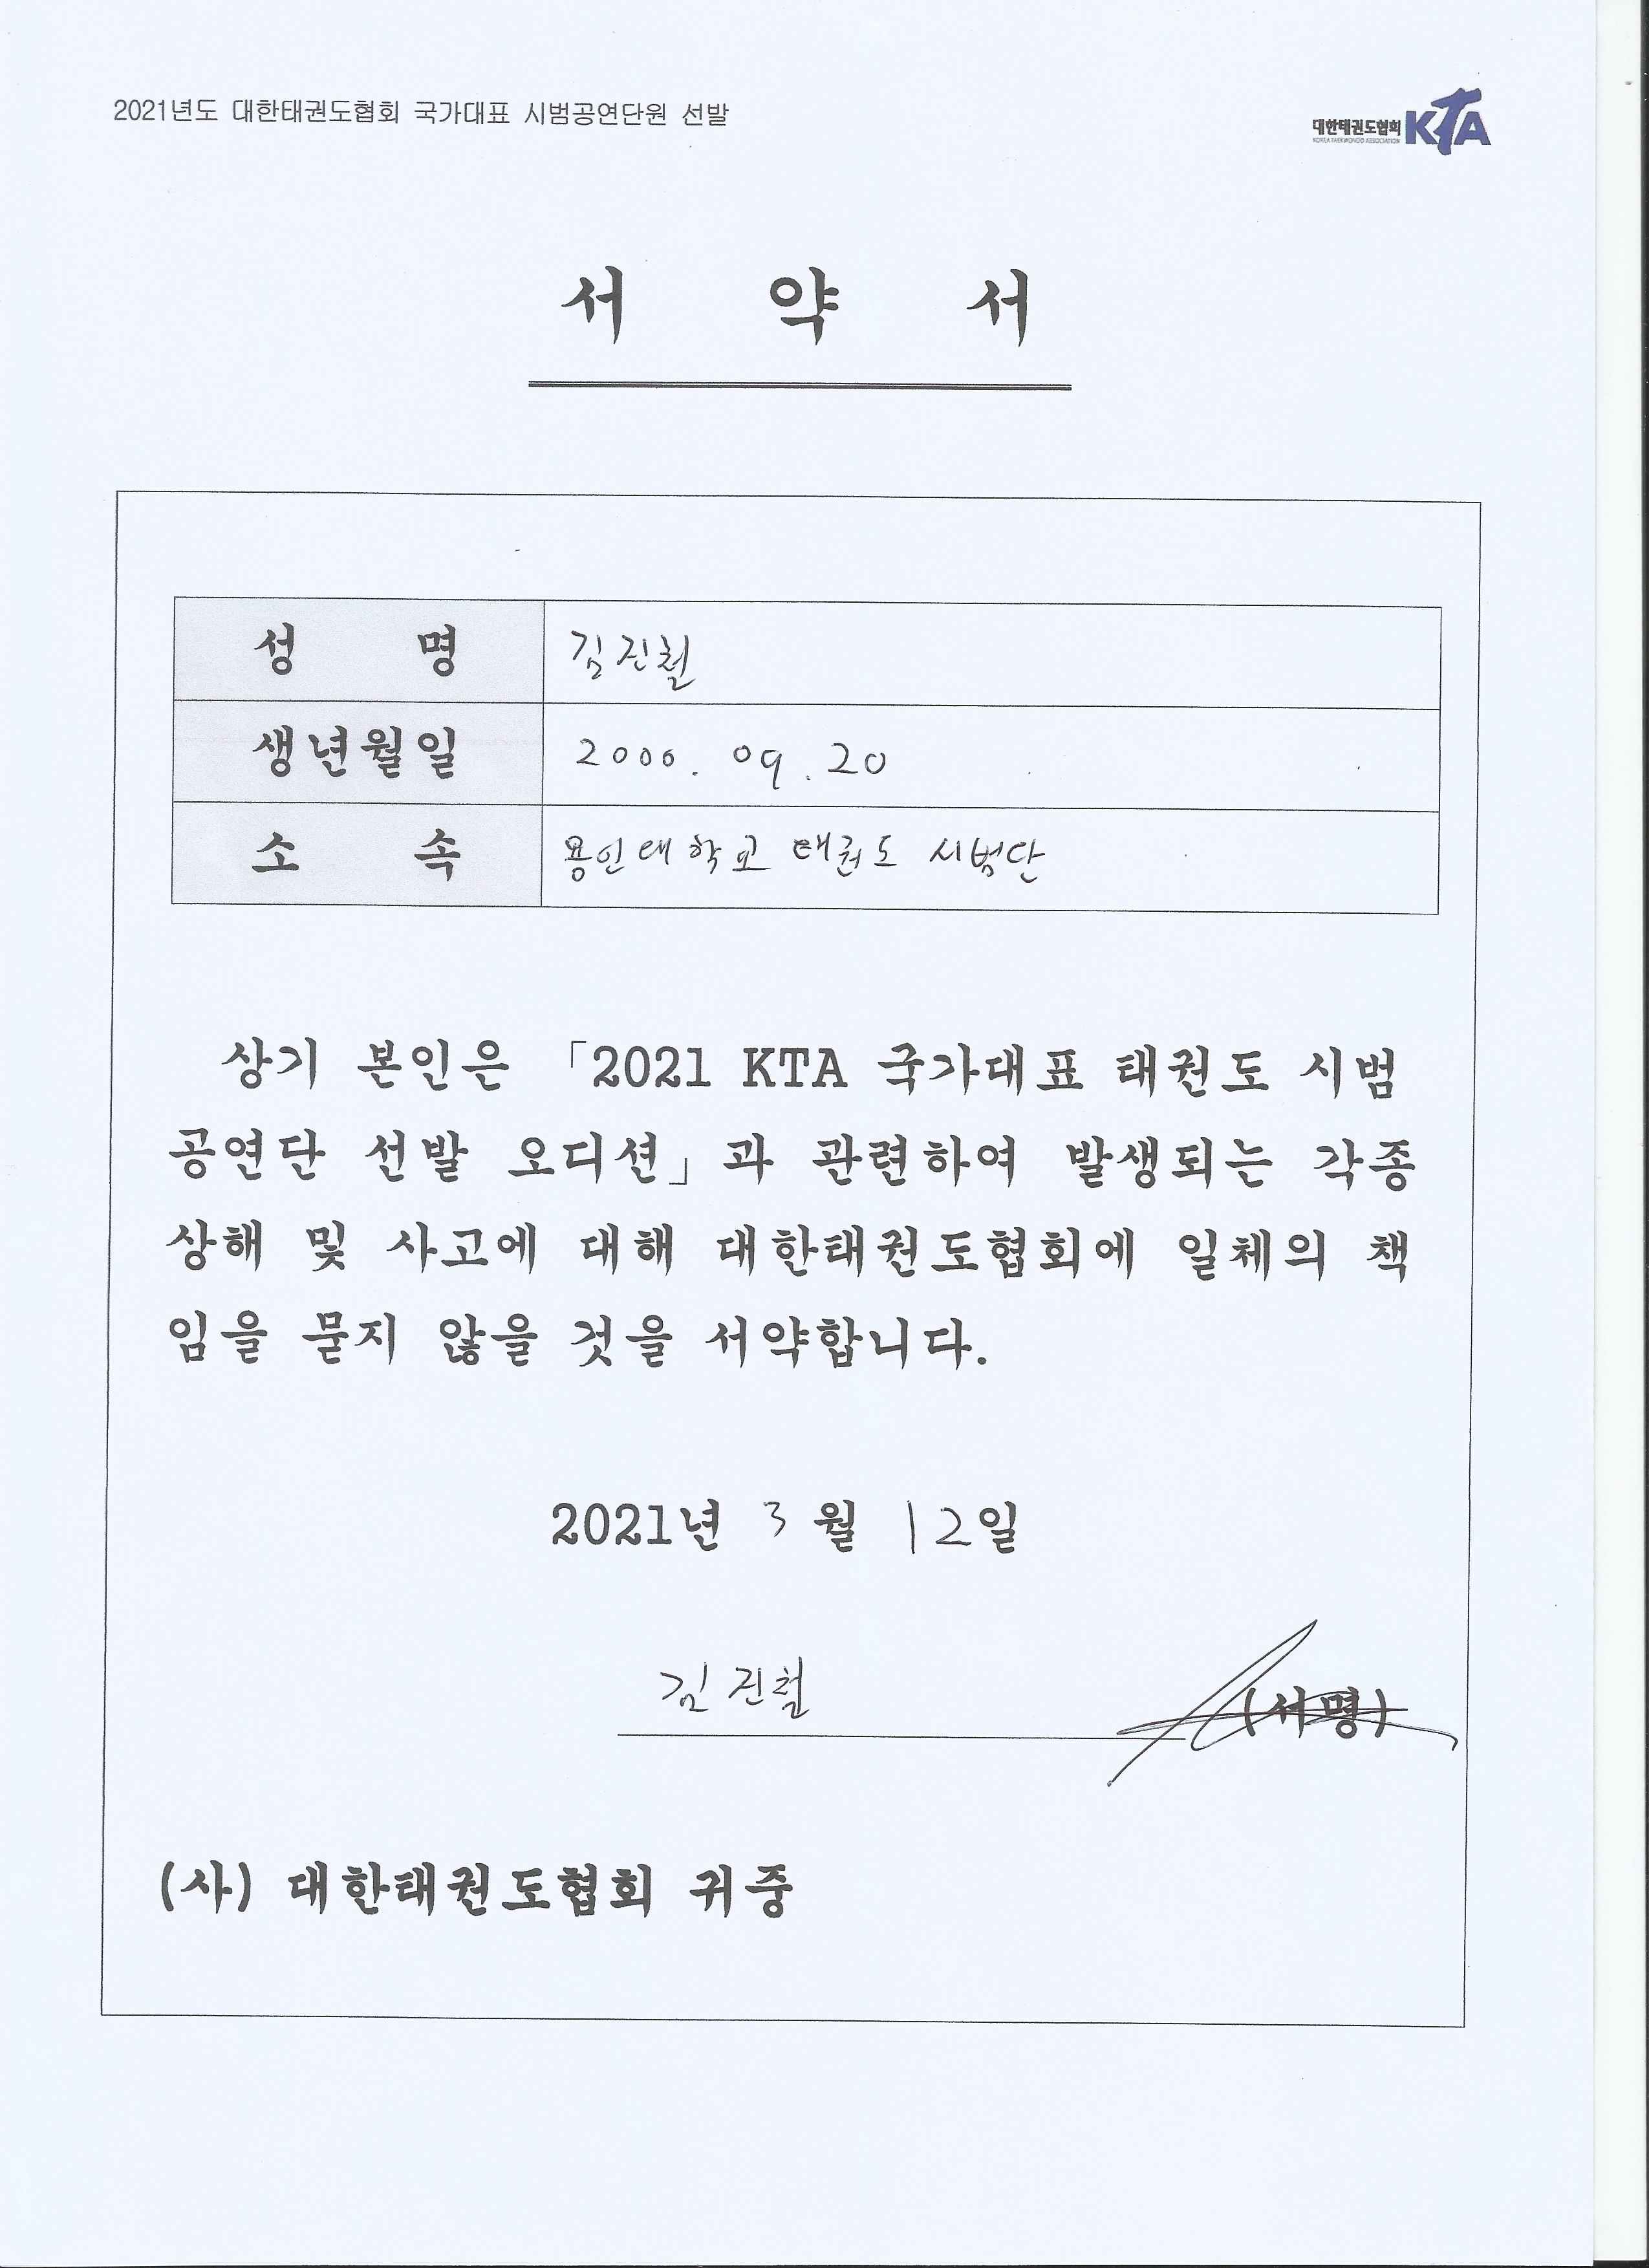 2021년도 대한태권도협회 국가대표 시범공연단원 선발
대한태권도협회 KTA
KOREA TAEKWONDO ASSOCIATION
서 약 서
성 명 김진철
생년월일 2000. 09. 20
소 속 용인대학교 태권도 시범단
상기 본인은 「2021 KTA 국가대표 태권도 시범
공연단 선발 오디션」과 관련하여 발생되는 각종
상해 및 사고에 대해 대한태권도협회에 일체의 책
임을 묻지 않을 것을 서약합니다.
2021년 3월 12일
김진철 (서명)
(사) 대한태권도협회 귀중